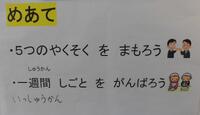 めあて
・5つのやくそく を まもろう
しゅうかん
・一週間 しごと を がんばろう
いっしゅうかん